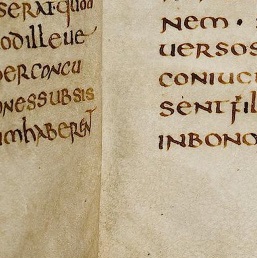 serat·quod
odilleue
perconcu
onessubsis
imhaberent
nem·
uersos
coniuci
sent fil
inbono